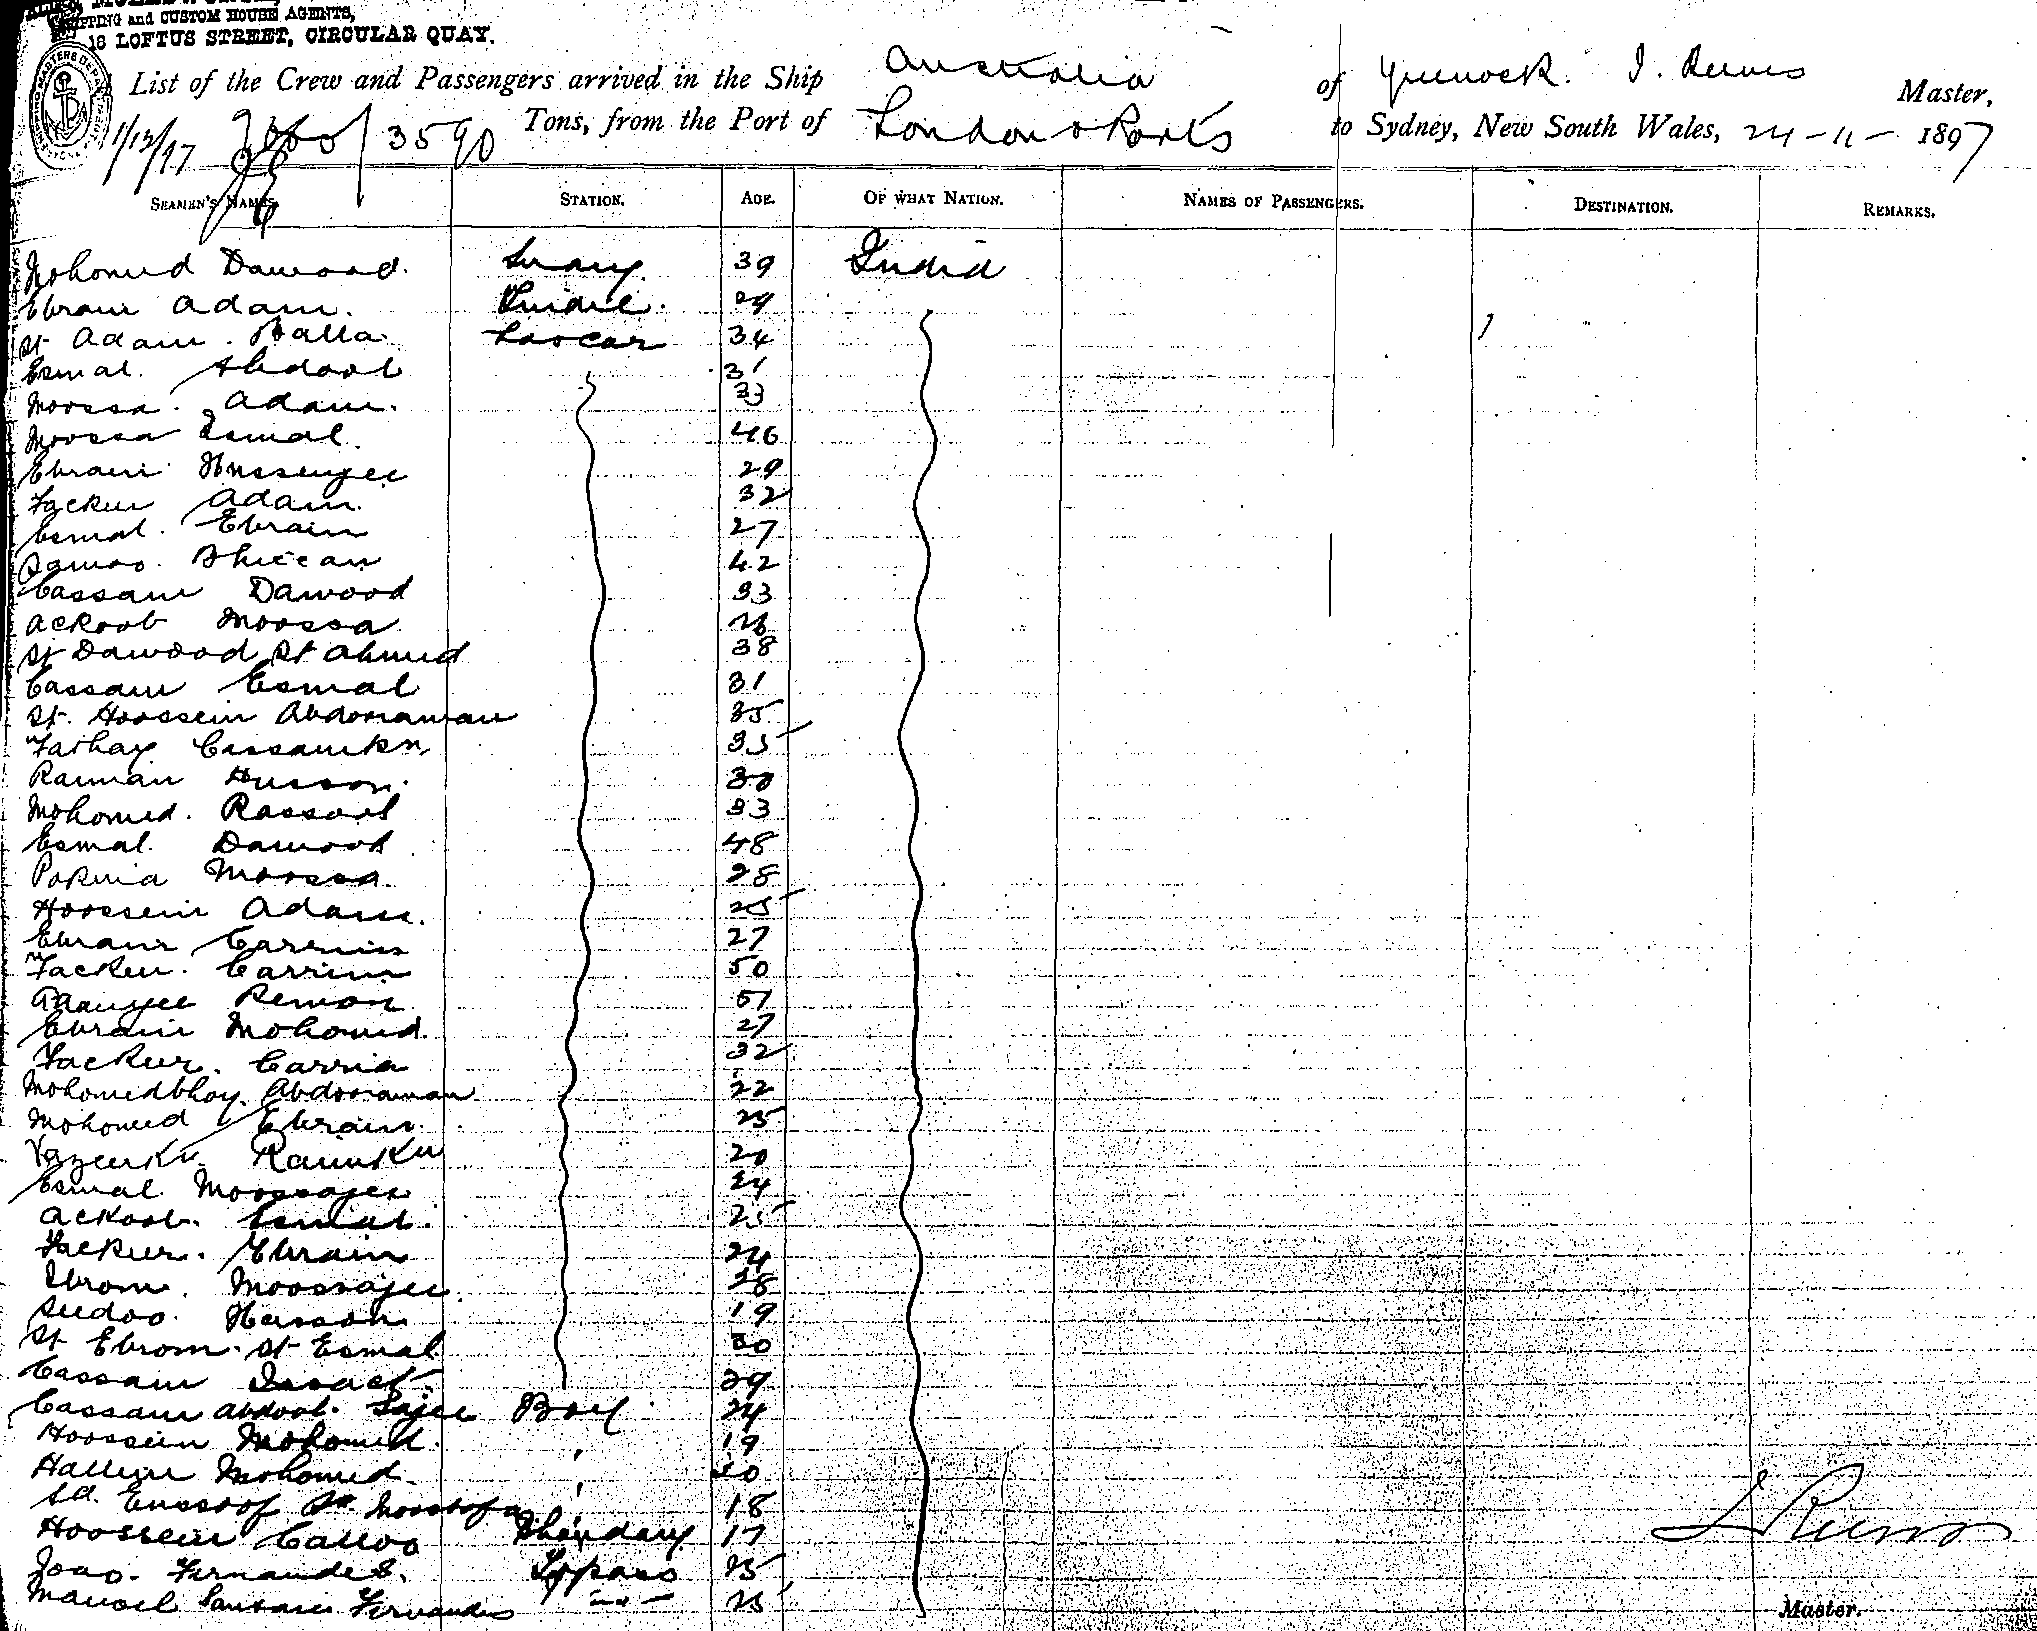 SHIPPING and CUSTOM HOUSE AGENTS,
18 LOFTUS STREET, CIRCULAR QUAY.
List of the Crew and Passengers arrived in the Ship Australia of Greenock. J. Reeves Master,
1/12/97 3590 Tons, from the Port of London & Ports to Sydney, New South Wales, 24-11-1897
SEAMEN'S NAMES. STATION. AGE. OF WHAT NATION. NAMES OF PASSENGERS. DESTINATION. REMARKS.
Mohomed Dawood. Serang 39 India
Ebraim Adam. Tindle. 29
St Adam. Balla. Lascar 34
Esmal. Abdool 31
Moossa. Adam. 33
Moossa Esmal. 46
Ebraim Hussenjee 29
Facker Adam. 32
Esmal. Ebraim 27
Bhiccan 42
Cassam Dawood 33
Ackoob Moossa 26
St Dawood St Ahmed 38
Cassam Esmal 31
St. Hoossein Abdooraman 35
35
Raiman Husson. 30
Mohomed. Rassool 33
Esmal. Dawood 48
Moossa. 28
Hoossein Adam. 25
Ebraim Carrim 27
Facker. Carrim 50
51
Ebraim Mohomed. 27
Facker. Carrim 32
Mohomedbhoy. Abdooraman 22
Mohomed Ebraim. 25
20
Esmal Moossajee 24
Ackoob. Esmal. 25
Facker. Ebraim 24
Ebrom. Moossajee 28
Seedoo. Hasson 19
St Ebrom. St Esmal 30
Cassam Isaac 29
Cassam Abdool. Boy 24
Hoossein Mohomed. " 19
Mohomed. " 20
Sd. Eussoof Moostofa " 18
Hoossein Calloo Bhandary 17
Joao. Fernandes. Topass 25
Manoel Fernandes " 25
J. Reeves
Master.